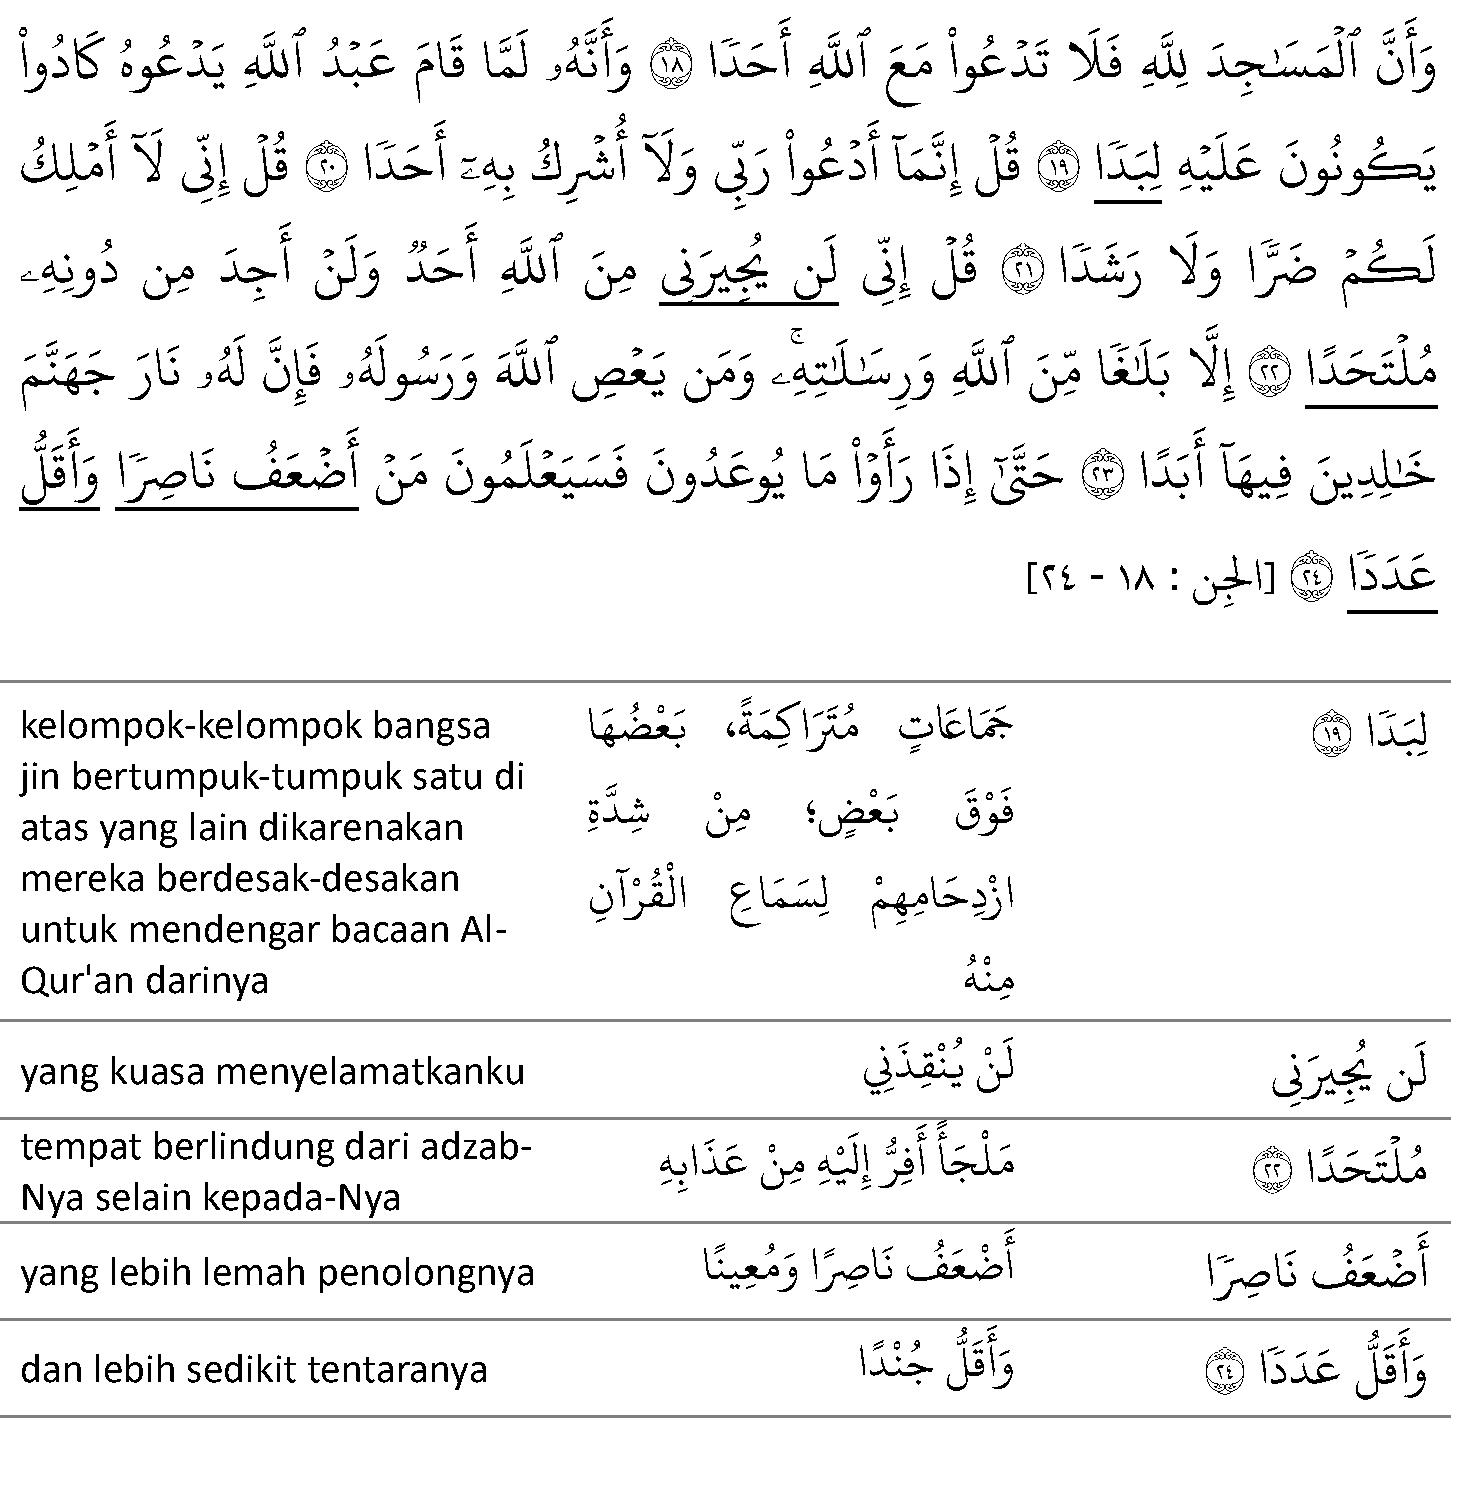 وَأَنَّ ٱلۡمَسَٰجِدَ لِلَّهِ فَلَا تَدۡعُواْ مَعَ ٱللَّهِ أَحَدٗا ١٨ وَأَنَّهُۥ لَمَّا قَامَ عَبۡدُ ٱللَّهِ يَدۡعُوهُ كَادُواْ
يَكُونُونَ عَلَيۡهِ لِبَدٗا ١٩ قُلۡ إِنَّمَآ أَدۡعُواْ رَبِّي وَلَآ أُشۡرِكُ بِهِۦٓ أَحَدٗا ٢٠ قُلۡ إِنِّي لَآ أَمۡلِكُ
لَكُمۡ ضَرّٗا وَلَا رَشَدٗا ٢١ قُلۡ إِنِّي لَن يُجِيرَنِي مِنَ ٱللَّهِ أَحَدٞ وَلَنۡ أَجِدَ مِن دُونِهِۦ
مُلۡتَحَدًا ٢٢ إِلَّا بَلَٰغٗا مِّنَ ٱللَّهِ وَرِسَٰلَٰتِهِۦۚ وَمَن يَعۡصِ ٱللَّهَ وَرَسُولَهُۥ فَإِنَّ لَهُۥ نَارَ جَهَنَّمَ
خَٰلِدِينَ فِيهَآ أَبَدًا ٢٣ حَتَّىٰٓ إِذَا رَأَوۡاْ مَا يُوعَدُونَ فَسَيَعۡلَمُونَ مَنۡ أَضۡعَفُ نَاصِرٗا وَأَقَلُّ
عَدَدٗا ٢٤ [الجِن : ١٨ - ٢٤]
لِبَدٗا ١٩
جَمَاعَاتٍ مُتَرَاكِمَةً، بَعْضُهَا
فَوْقَ بَعْضٍ؛ مِنْ شِدَّةِ
ازْدِحَامِهِمْ لِسَمَاعِ الْقُرْآنِ
مِنْهُ
kelompok-kelompok bangsa
jin bertumpuk-tumpuk satu di
atas yang lain dikarenakan
mereka berdesak-desakan
untuk mendengar bacaan Al-
Qur'an darinya
لَن يُجِيرَنِي
لَنْ يُنْقِذَنِي
yang kuasa menyelamatkanku
مُلۡتَحَدًا ٢٢
مَلْجَأً أَفِرُّ إِلَيْهِ مِنْ عَذَابِهِ
tempat berlindung dari adzab-
Nya selain kepada-Nya
أَضۡعَفُ نَاصِرٗا
أَضْعَفُ نَاصِرًا وَمُعِينًا
yang lebih lemah penolongnya
وَأَقَلُّ عَدَدٗا ٢٤
وَأَقَلُّ جُنْدًا
dan lebih sedikit tentaranya